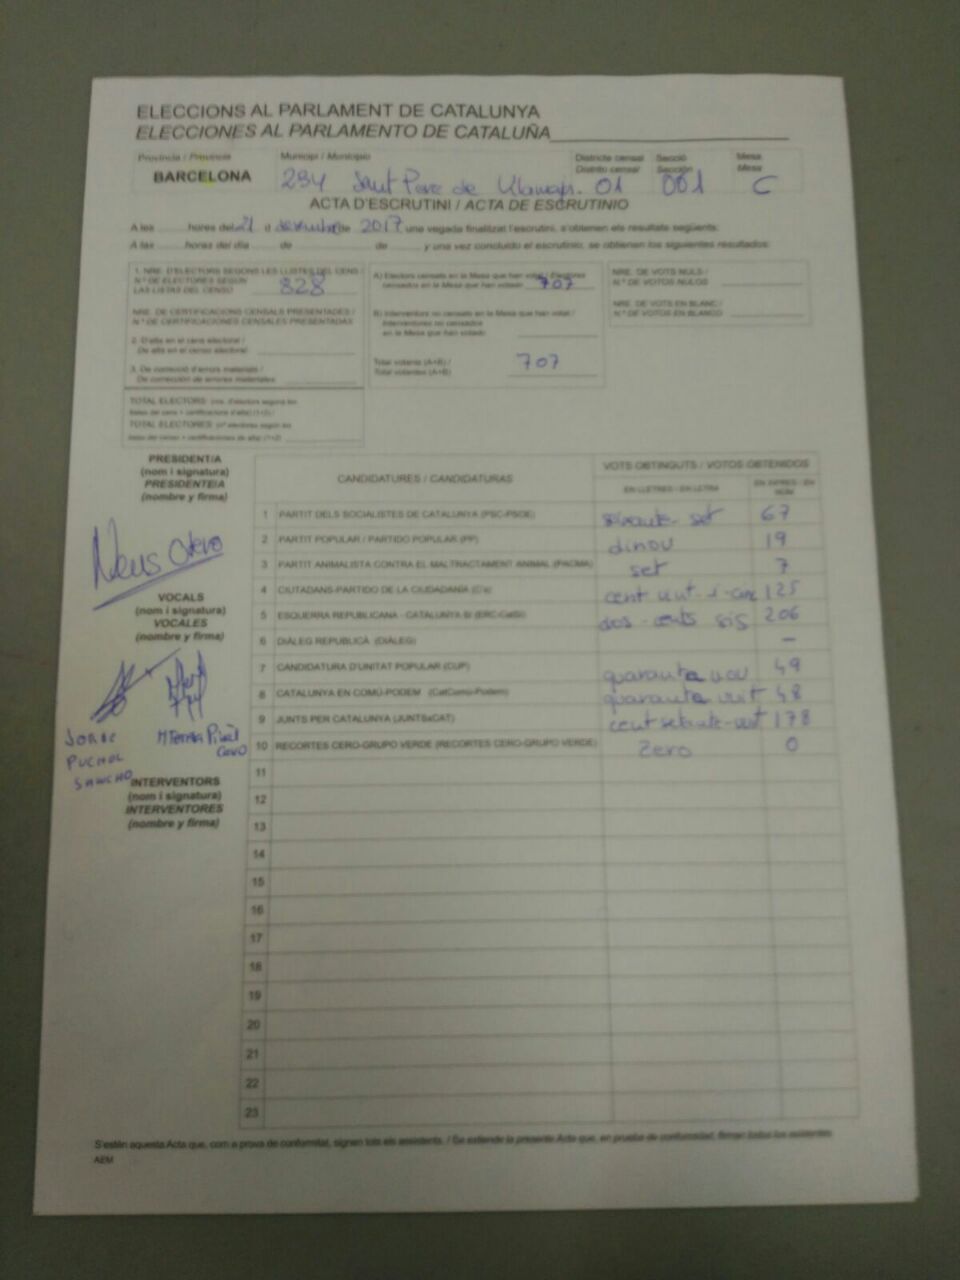 ELECCIONS AL PARLAMENT DE CATALUNYA
ELECCIONES AL PARLAMENTO DE CATALUÑA
Província / Provincia
Municipi / Municipio
Districte censal
Distrito censal
Secció
Sección
Mesa
Mesa
BARCELONA
234 Sant Pere de 01 001 C
ACTA D'ESCRUTINI / ACTA DE ESCRUTINIO
A les hores del 21 d desembre de 2017 una vegada finalitzat l'escrutini, s'obtenen els resultats següents:
A las hores del día de de y una vez concluido el escrutinio, se obtienen los siguientes resultados:
1. NRE. D'ELECTORS SEGONS LES LLISTES DEL CENS /
N.º DE ELECTORES SEGÚN
LAS LISTAS DEL CENSO
828
NRE. DE CERTIFICACIONS CENSALS PRESENTADES /
N.º DE CERTIFICACIONES CENSALES PRESENTADAS
2. D'alta en el cens electoral /
De alta en el censo electoral
3. De correcció d'errors materials /
De corrección de errores materiales
TOTAL ELECTORS: (nre. d'electors segons les
llistes del cens + certificacions d'alta) (1+2) /
TOTAL ELECTORES: (nº electores según las
listas del censo + certificaciones de alta) (1+2)
A) Electors censats en la Mesa que han votat / Electores
censados en la Mesa que han votado 707
B) Interventors no censats en la Mesa que han votat /
Interventores no censados
en la Mesa que han votado
Total votants (A+B) /
Total votantes (A+B)
707
NRE. DE VOTS NULS /
N.º DE VOTOS NULOS
NRE. DE VOTS EN BLANC /
N.º DE VOTOS EN BLANCO
PRESIDENT/A
(nom i signatura)
PRESIDENTE/A
(nombre y firma)
Neus Otero
VOCALS
(nom i signatura)
VOCALES
(nombre y firma)
JORGE
PUCHOL
SANCHO
INTERVENTORS
(nom i signatura)
INTERVENTORES
(nombre y firma)
CANDIDATURES / CANDIDATURAS
VOTS OBTINGUTS / VOTOS OBTENIDOS
EN LLETRES - EN LETRA
EN XIFRES - EN NÚM
1 PARTIT DELS SOCIALISTES DE CATALUNYA (PSC-PSOE) seixanta set 67
2 PARTIT POPULAR / PARTIDO POPULAR (PP) dinou 19
3 PARTIT ANIMALISTA CONTRA EL MALTRACTAMENT ANIMAL (PACMA) set 7
4 CIUTADANS-PARTIDO DE LA CIUDADANÍA (C's) cent vint-i-cinc 125
5 ESQUERRA REPUBLICANA - CATALUNYA SÍ (ERC-CatSí) dos-cents sis 206
6 DIÀLEG REPUBLICÀ (DIÀLEG) -
7 CANDIDATURA D'UNITAT POPULAR (CUP) quaranta nou 49
8 CATALUNYA EN COMÚ-PODEM (CatComú-Podem) quaranta vuit 48
9 JUNTS PER CATALUNYA (JUNTSxCAT) cent setanta-vuit 178
10 RECORTES CERO-GRUPO VERDE (RECORTES CERO-GRUPO VERDE) Zero 0
11
12
13
14
15
16
17
18
19
20
21
22
23
S'estén aquesta Acta que, com a prova de conformitat, signen tots els assistents. / Se extiende la presente Acta que, en prueba de conformidad, firman todos los asistentes
AEM